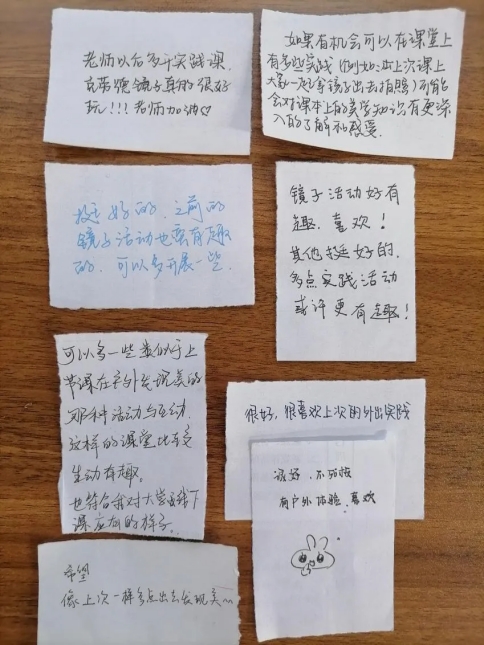 老师以后多开实践课,
克劳德镜子真的很好
玩!!!老师加油♡
如果有机会可以在课堂上
有多些实践(例如:上次课上
大家一起拿镜子出去拍照)可能
会对课本上的美学知识有更深
入的了解和感受.
挺好的.之前的
镜子活动也蛮有趣
的.可以多开展一些.
镜子活动好有
趣.喜欢!
其他挺好的,
多点实践活动
或许更有趣!
可以多一些类似于上
节课在户外发现美的
那种活动与互动.
这样的课堂比较
生动有趣。
也符合我对大学
课应有的样子.
很好,很喜欢上次的外出实践
很好,不枯燥
有户外体验,喜欢
希望
像上次一样多点出去发现美~